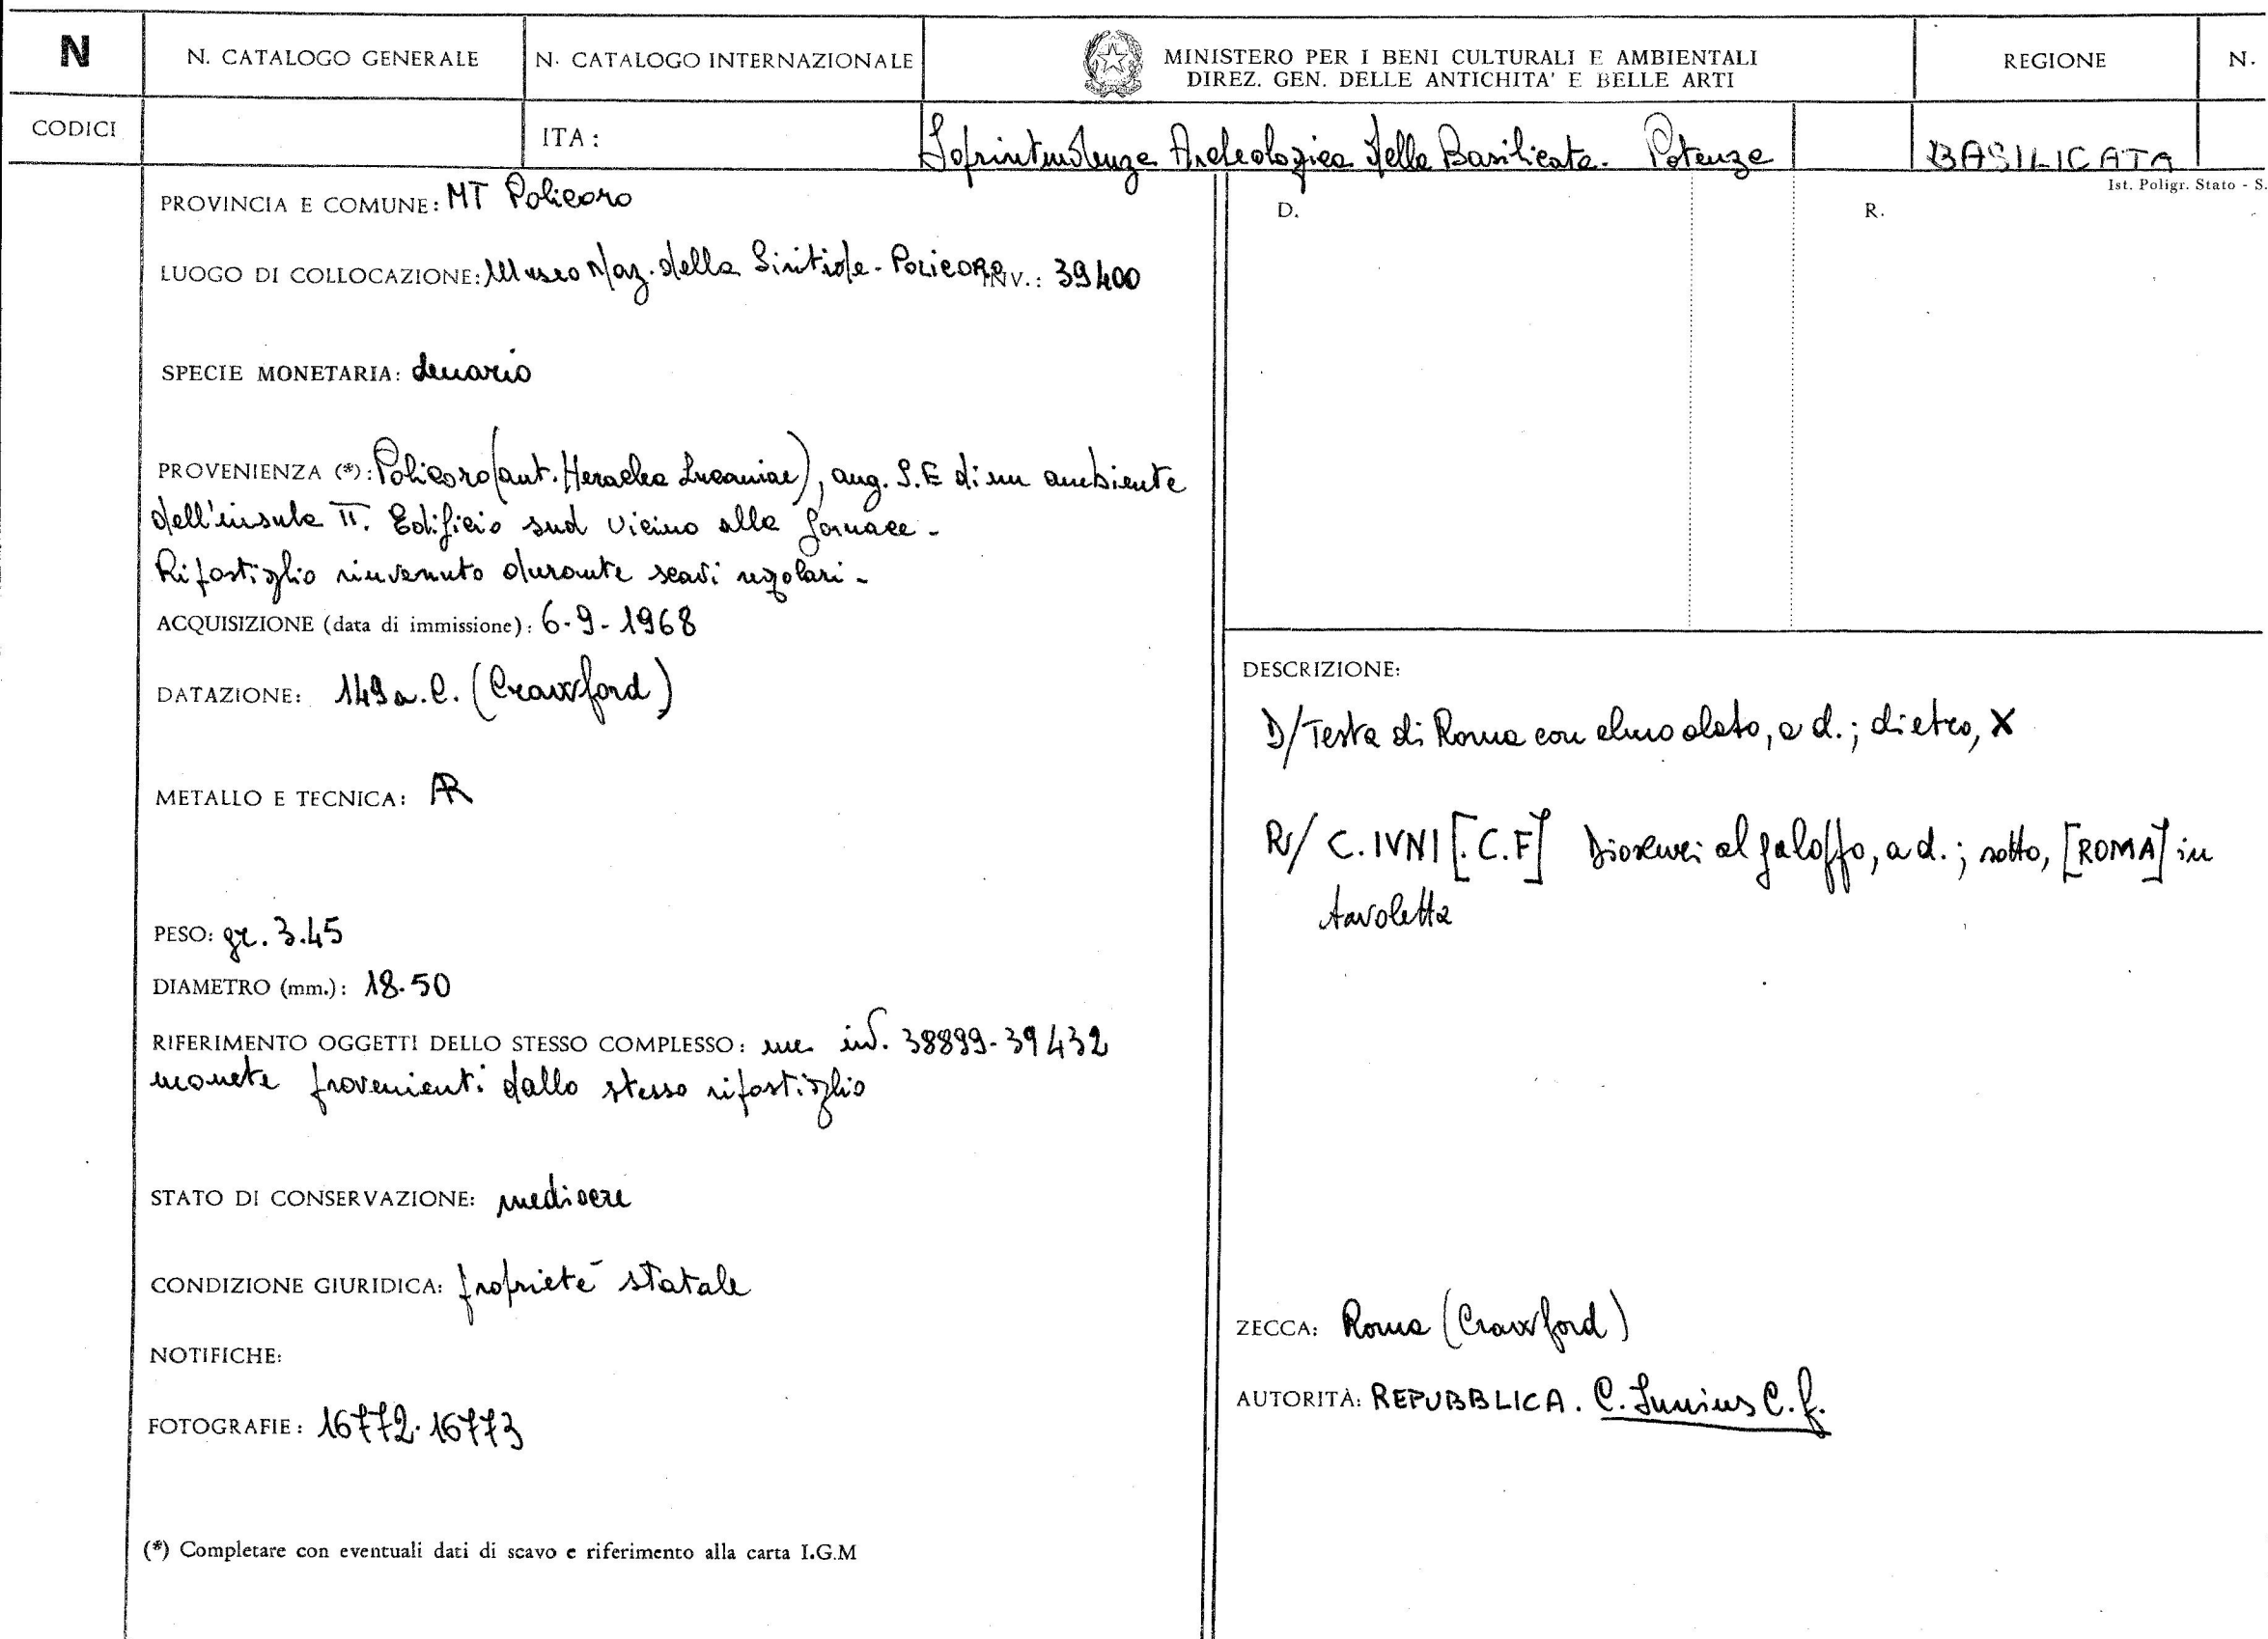 N
N. CATALOGO GENERALE
N. CATALOGO INTERNAZIONALE
MINISTERO PER I BENI CULTURALI E AMBIENTALI
DIREZ. GEN. DELLE ANTICHITA' E BELLE ARTI
REGIONE
N.
CODICI
ITA:
Soprintendenza Archeologica della Basilicata. Potenza
BASILICATA
Ist. Poligr. Stato - S.
PROVINCIA E COMUNE: MT Policoro
LUOGO DI COLLOCAZIONE: Museo Naz. della Siritide - POLICORO INV.: 39400
SPECIE MONETARIA: denario
PROVENIENZA (*): Policoro (ant. Heraclea Lucaniae), ang. S.E di un ambiente
dell'insula II. Edificio sud vicino alla fornace -
Ripostiglio rinvenuto durante scavi regolari -
ACQUISIZIONE (data di immissione): 6-9-1968
DATAZIONE: 149 a.C. (Crawford)
METALLO E TECNICA: AR
PESO: gr. 3.45
DIAMETRO (mm.): 18.50
RIFERIMENTO OGGETTI DELLO STESSO COMPLESSO: nn. inv. 38899-39432
monete provenienti dallo stesso ripostiglio
STATO DI CONSERVAZIONE: mediocre
CONDIZIONE GIURIDICA: proprietà statale
NOTIFICHE:
FOTOGRAFIE: 16772-16773
(*) Completare con eventuali dati di scavo e riferimento alla carta I.G.M
D.
R.
DESCRIZIONE:
D/ Testa di Roma con elmo alato, a d.; dietro, X
R/ C.IVNI[.C.F] Dioscuri al galoppo, a d.; sotto, [ROMA] in
tavoletta
ZECCA: Roma (Crawford)
AUTORITÀ: REPUBBLICA. C. Iunius C.f.